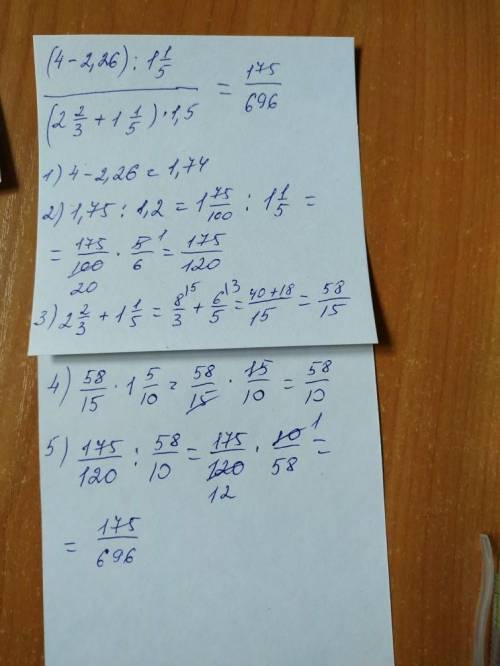 (4 - 2,26) : 1 1/5
(2 2/3 + 1 1/5) · 1,5
= 175/696
1) 4 - 2,26 = 1,74
2) 1,75 : 1,2 = 1 75/100 : 1 1/5 =
= 175/100 20 · 5/6 1 = 175/120
3) 2 2/3 + 1 1/5 = 8/3 15 + 6/5 13 = 40+18/15 = 58/15
4) 58/15 · 1 5/10 = 58/15 · 15/10 = 58/10
5) 175/120 : 58/10 = 175/120 12 · 10/58 1 =
= 175/696